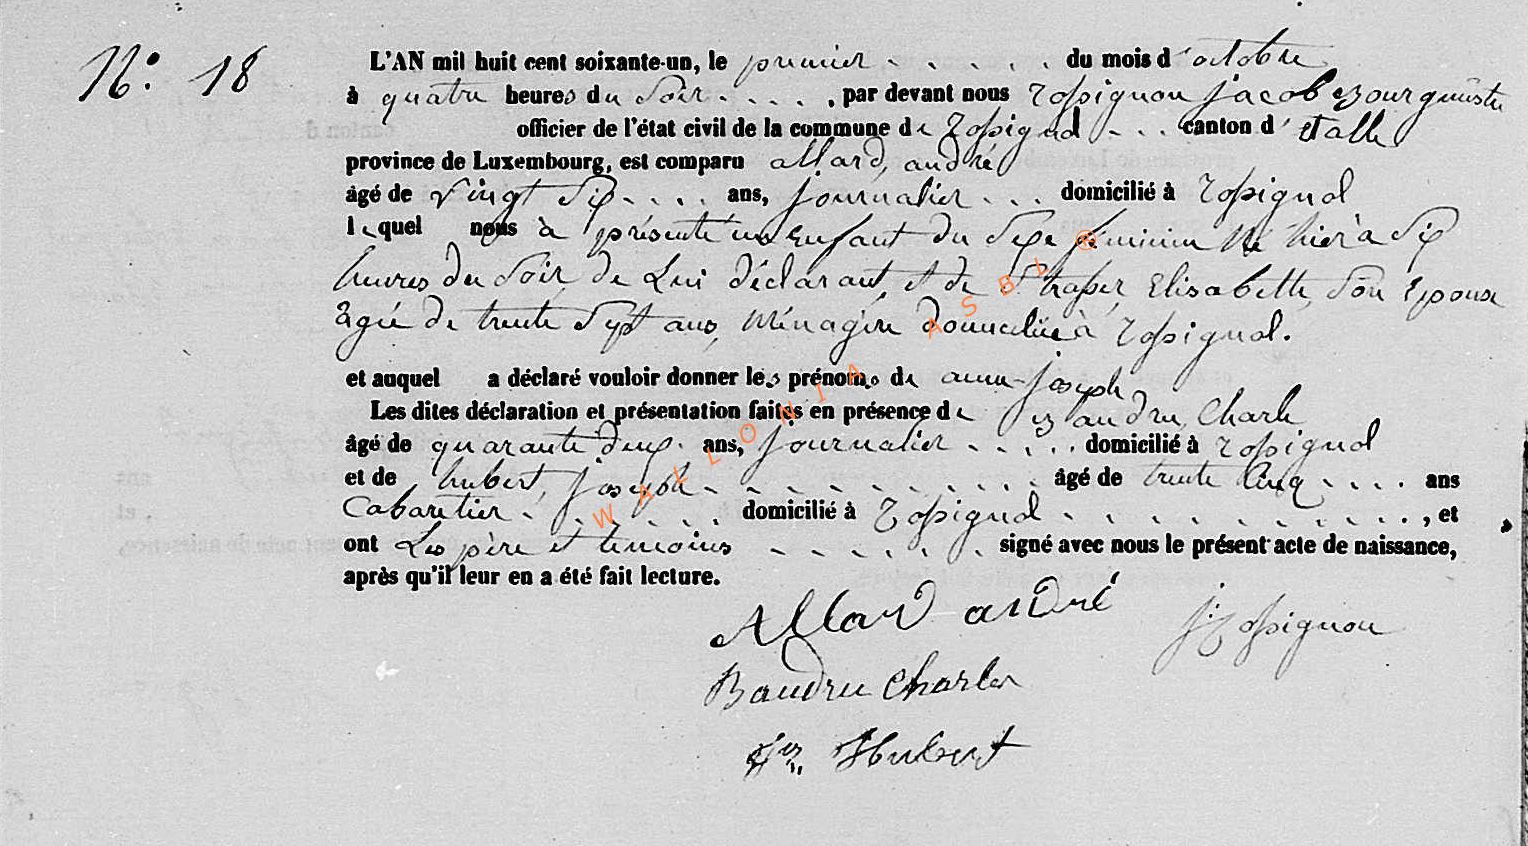 N.° 18
L'AN mil huit cent soixante-un, le premier . . . . . du mois d'octobre
à quatre heures du Soir . . . . , par devant nous Rossignon Jacob Bourguestre
officier de l'état civil de la commune de Rossignol - . . canton d'Etalle
province de Luxembourg, est comparu allard, andré
âgé de vingt Six . . . . ans, Journalier . . . domicilié à Rossignol
lequel nous à présenté un Enfant du Sexe féminin Né hier à Six
heures du Soir, de Lui déclarant, et de Elisabette, Son Epouse
agée de trente Sept ans, Ménagère domiciliée à Rossignol.
et auquel a déclaré vouloir donner les prénoms de anne-Joseph
Les dites déclaration et présentation faites en présence de Baudru, Charle
âgé de quarante deux . ans, Journalier . . . . . domicilié à Rossignol
et de hubert, Joseph . . . . . . . . . . . âgé de trente Cinq . . . . ans
Cabaretier . . . . . . . domicilié à Rossignol . . . . . . . . . . . , et
ont Les père et temoins - - - - - - signé avec nous le présent acte de naissance,
après qu'il leur en a été fait lecture.
Allard andré
J: Rossignon
Baudru Charles
Hubert
WALLONIA ASBL ©